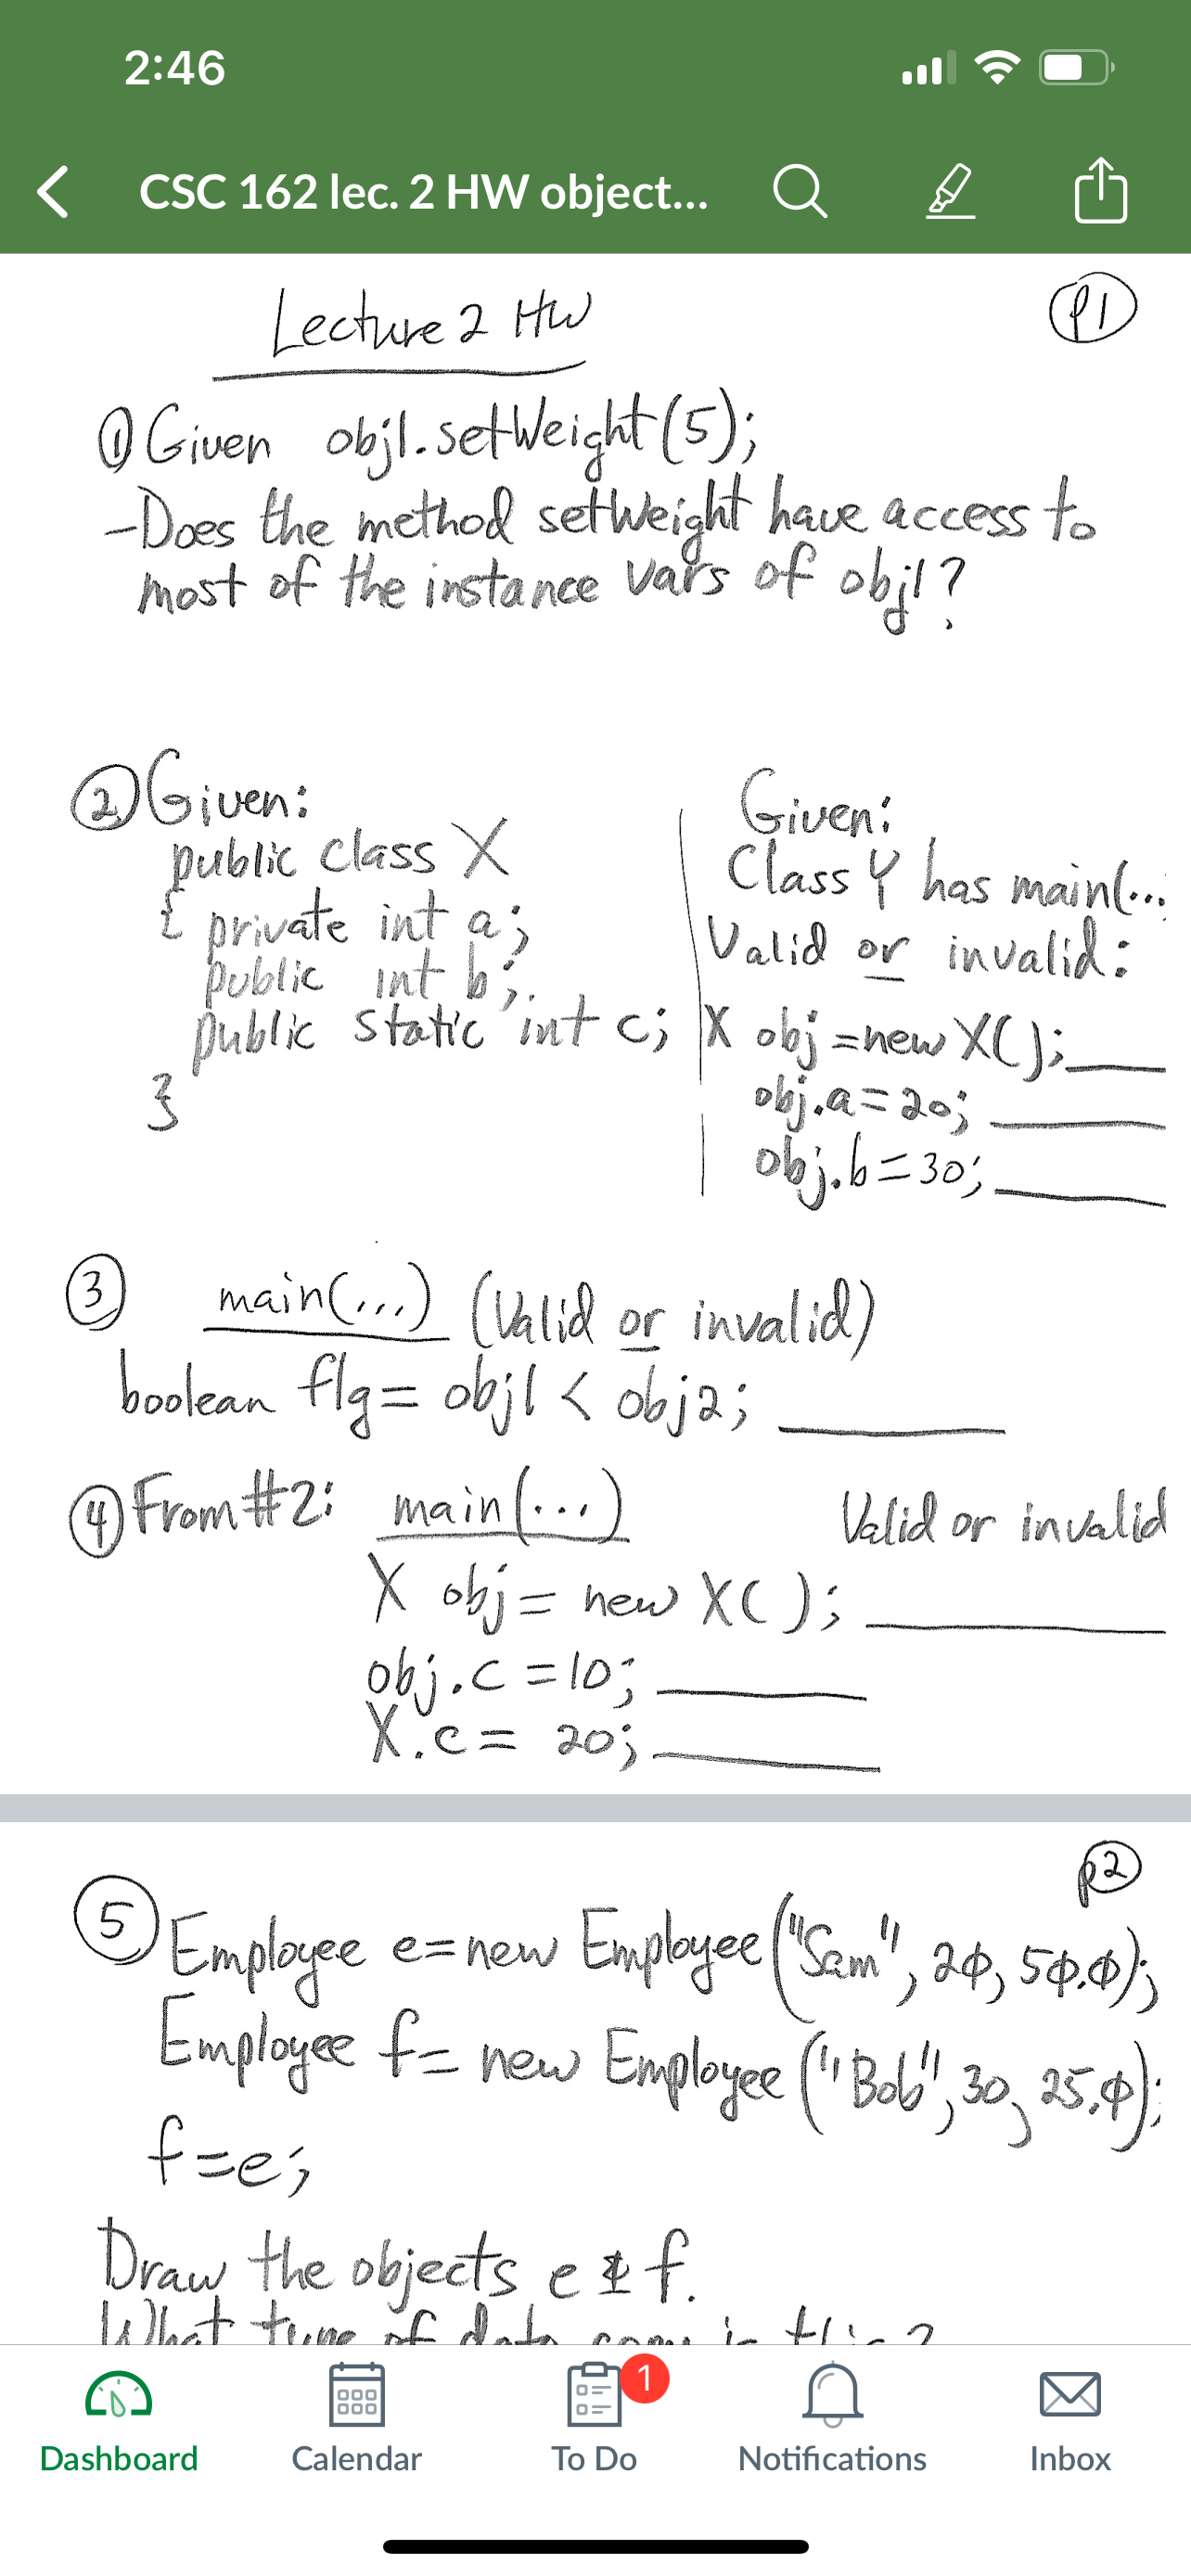 2:46
CSC 162 lec. 2 HW object...
Lecture 2 HW
p1
① Given obj1.setWeight(5);
-Does the method setWeight have access to
most of the instance vars of obj1?
② Given:
public class X
{ private int a;
public int b;
public static int c;
}
Given:
Class Y has main(...
Valid or invalid:
X obj=new X();____
obj.a=20;____
obj.b=30;____
③ main(...) (Valid or invalid)
boolean flg= obj1 < obj2; ____
④ From #2: main(...) Valid or invalid
X obj= new X( ); ____
obj.c =10; ____
X.c= 20; ____
p2
⑤ Employee e=new Employee("Sam", 20, 50.0);
Employee f= new Employee("Bob", 30, 25.0);
f=e;
Draw the objects e & f.
What type of data copy is this?
1
Dashboard
Calendar
To Do
Notifications
Inbox